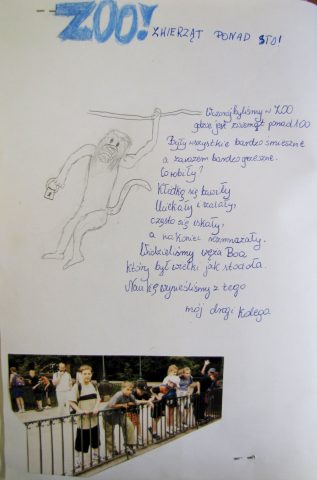 ZOO! ZWIERZĄT PONAD STO!
Wczoraj byliśmy w ZOO
gdzie jest zwierząt ponad 100
Były wszystkie bardzo śmieszne
a zarazem bardzo grzeszne.
Co robiły?
Kłódką się bawiły
Unikały i szalały,
często się iskały,
a na koniec rozmnażały.
Widzieliśmy węża Boa
który był wielki jak stodoła
Nawię wynieśliśmy z tego
mój drogi kolego